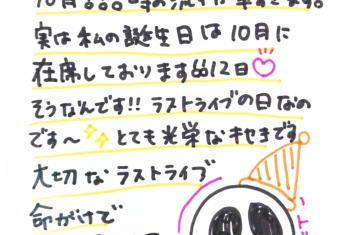 実は私の誕生日は10月に
在席しております👀12日♡
そうなんです!! ラストライブの日なの
です〜✨とても光栄なキセキです
大切なラストライブ
命がけで